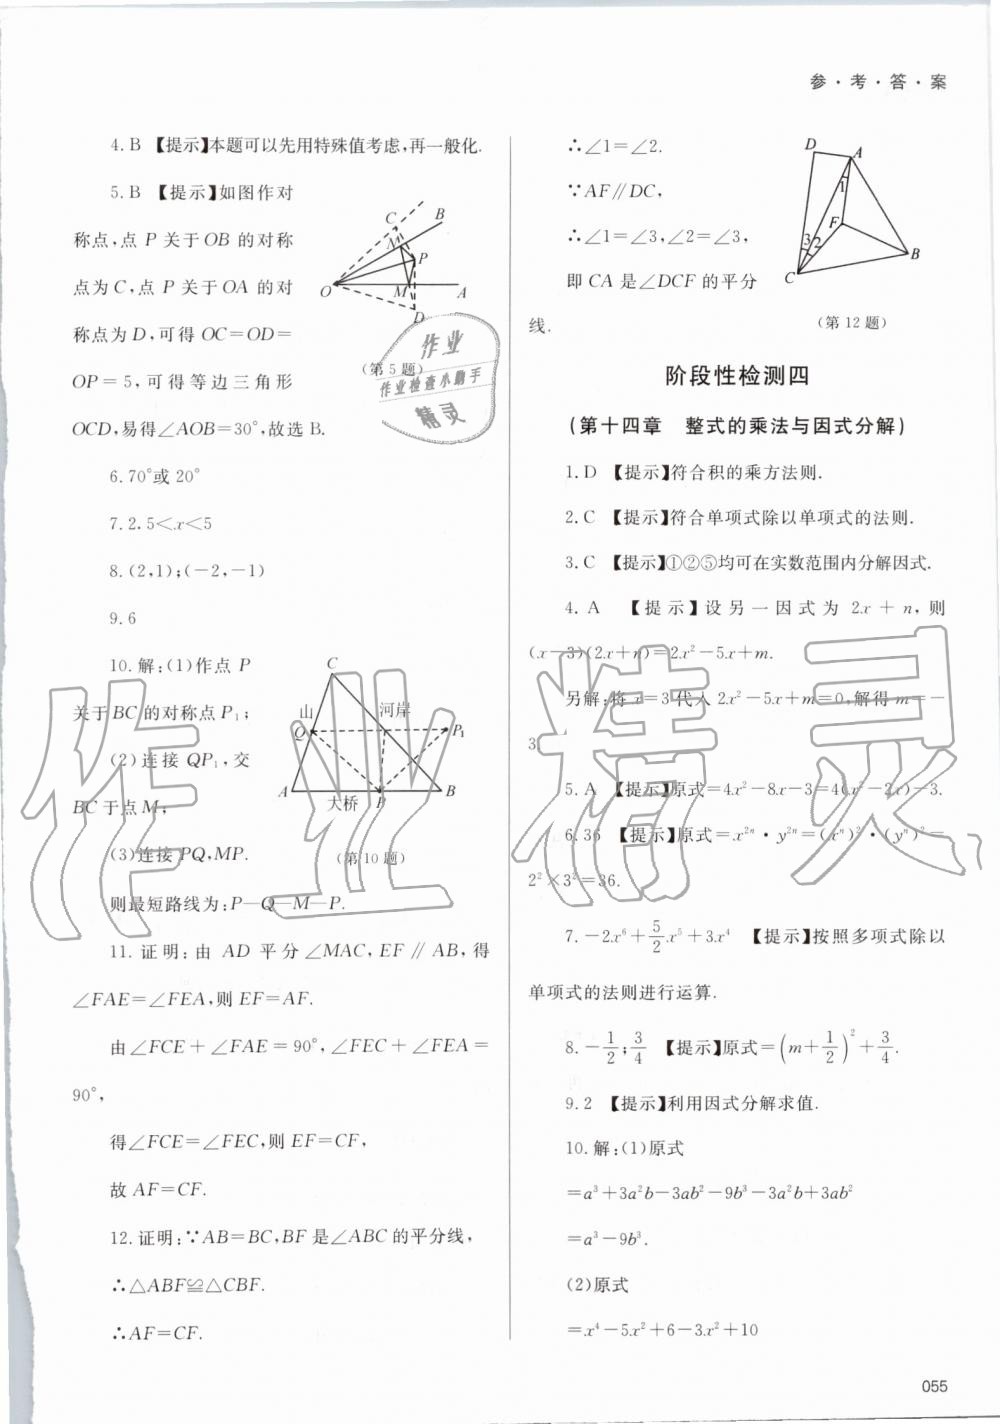 参·考·答·案
4.B 【提示】本题可以先用特殊值考虑,再一般化.
5.B 【提示】如图作对
称点,点 P 关于OB 的对称
点为C,点 P 关于OA 的对
称点为 D,可得 OC=OD=
OP=5,可得等边三角形
OCD,易得∠AOB=30°,故选 B.
C
B
M
P
O
M
A
D
(第 5 题)
作业
作业检查小助手
精灵
6.70°或 20°
7.2.5<x<5
8.(2,1);(-2,-1)
9.6
10.解:(1)作点 P
关于BC 的对称点 P₁;
(2)连接 QP₁,交
BC 于点 M;
(3)连接 PQ,MP.
C
山
河岸
Q
P₁
A
大桥
P
B
(第 10 题)
则最短路线为:P—Q—M—P.
11.证明:由 AD 平分∠MAC,EF∥AB,得
∠FAE=∠FEA,则 EF=AF.
由∠FCE+∠FAE=90°,∠FEC+∠FEA=
90°,
得∠FCE=∠FEC,则 EF=CF,
故 AF=CF.
12.证明:∵AB=BC,BF 是∠ABC 的平分线,
∴△ABF≌△CBF.
∴AF=CF.
∴∠1=∠2.
∵AF∥DC,
∴∠1=∠3,∠2=∠3,
即 CA 是∠DCF 的平分
线.
D
A
1
F
3
2
B
C
(第 12 题)
阶段性检测四
(第十四章 整式的乘法与因式分解)
1.D 【提示】符合积的乘方法则.
2.C 【提示】符合单项式除以单项式的法则.
3.C 【提示】①②⑤均可在实数范围内分解因式.
4.A 【提示】设另一因式为 2x+n,则
(x-3)(2x+n)=2x²-5x+m.
另解:将 x=3代入 2x²-5x+m=0,解得 m=-
3.
5.A 【提示】原式=4x²-8x-3=4(x²-2x)-3.
6.36 【提示】原式=x²ⁿ·y²ⁿ=(xⁿ)²·(yⁿ)²=
2²×3²=36.
7.-2x⁶+5/2x⁵+3x⁴ 【提示】按照多项式除以
单项式的法则进行运算.
8.-1/2;3/4 【提示】原式=(m+1/2)²+3/4.
9.2 【提示】利用因式分解求值.
10.解:(1)原式
=a³+3a²b-3ab²-9b³-3a²b+3ab²
=a³-9b³.
(2)原式
=x⁴-5x²+6-3x²+10
作业精灵
055